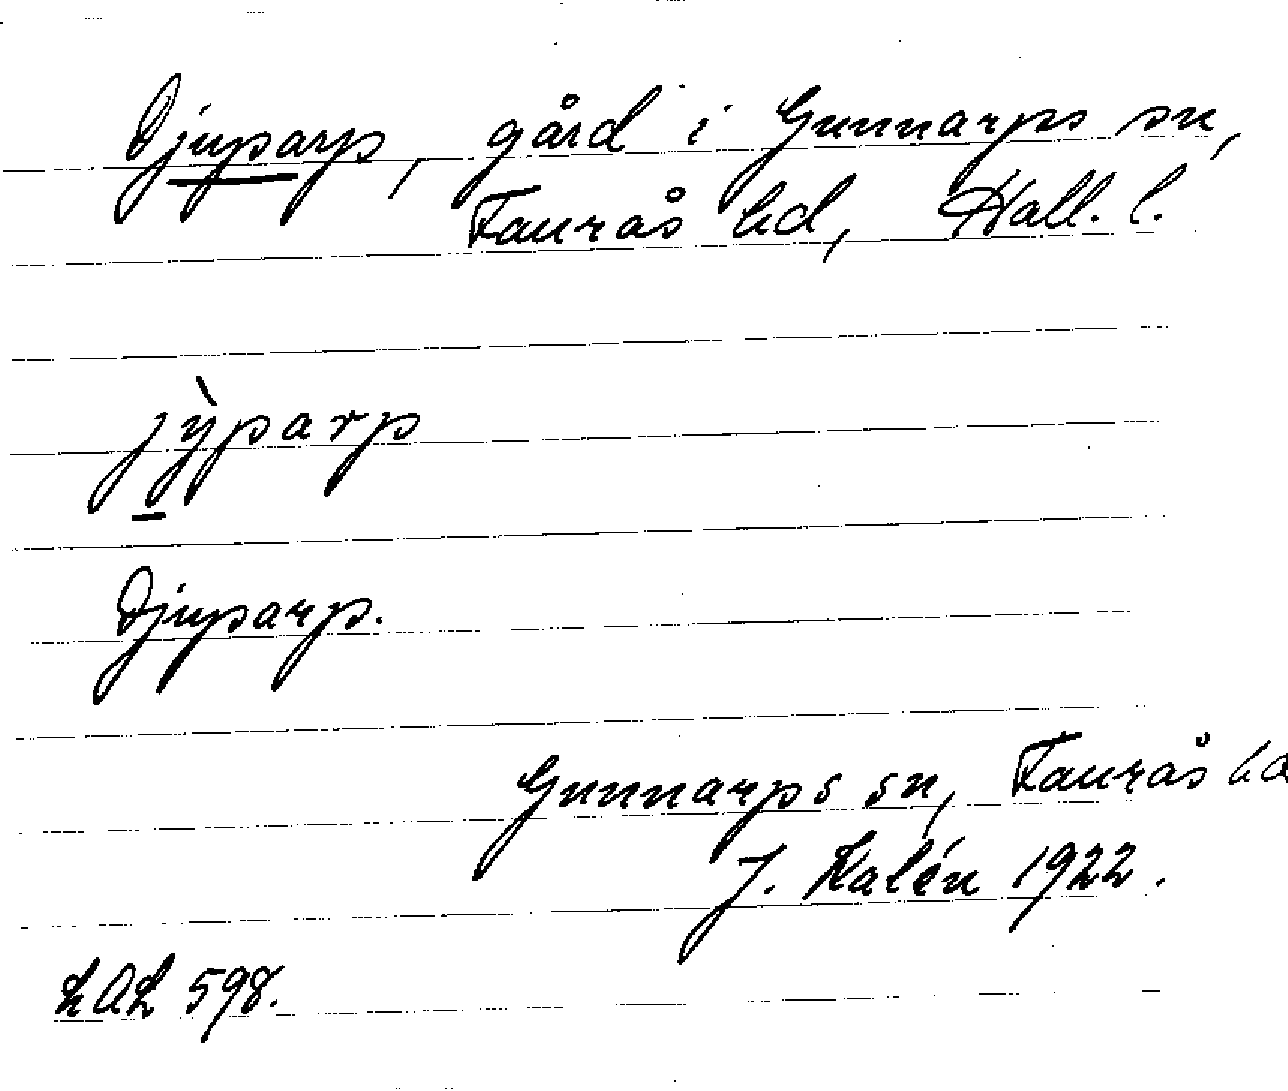 Djuparp, gård i Gunnarps sn,
Faurås hd, Hall. l.
jỳparp
Djuparp.
Gunnarps sn, Faurås hd
J. Kalén 1922.
LAL 598.